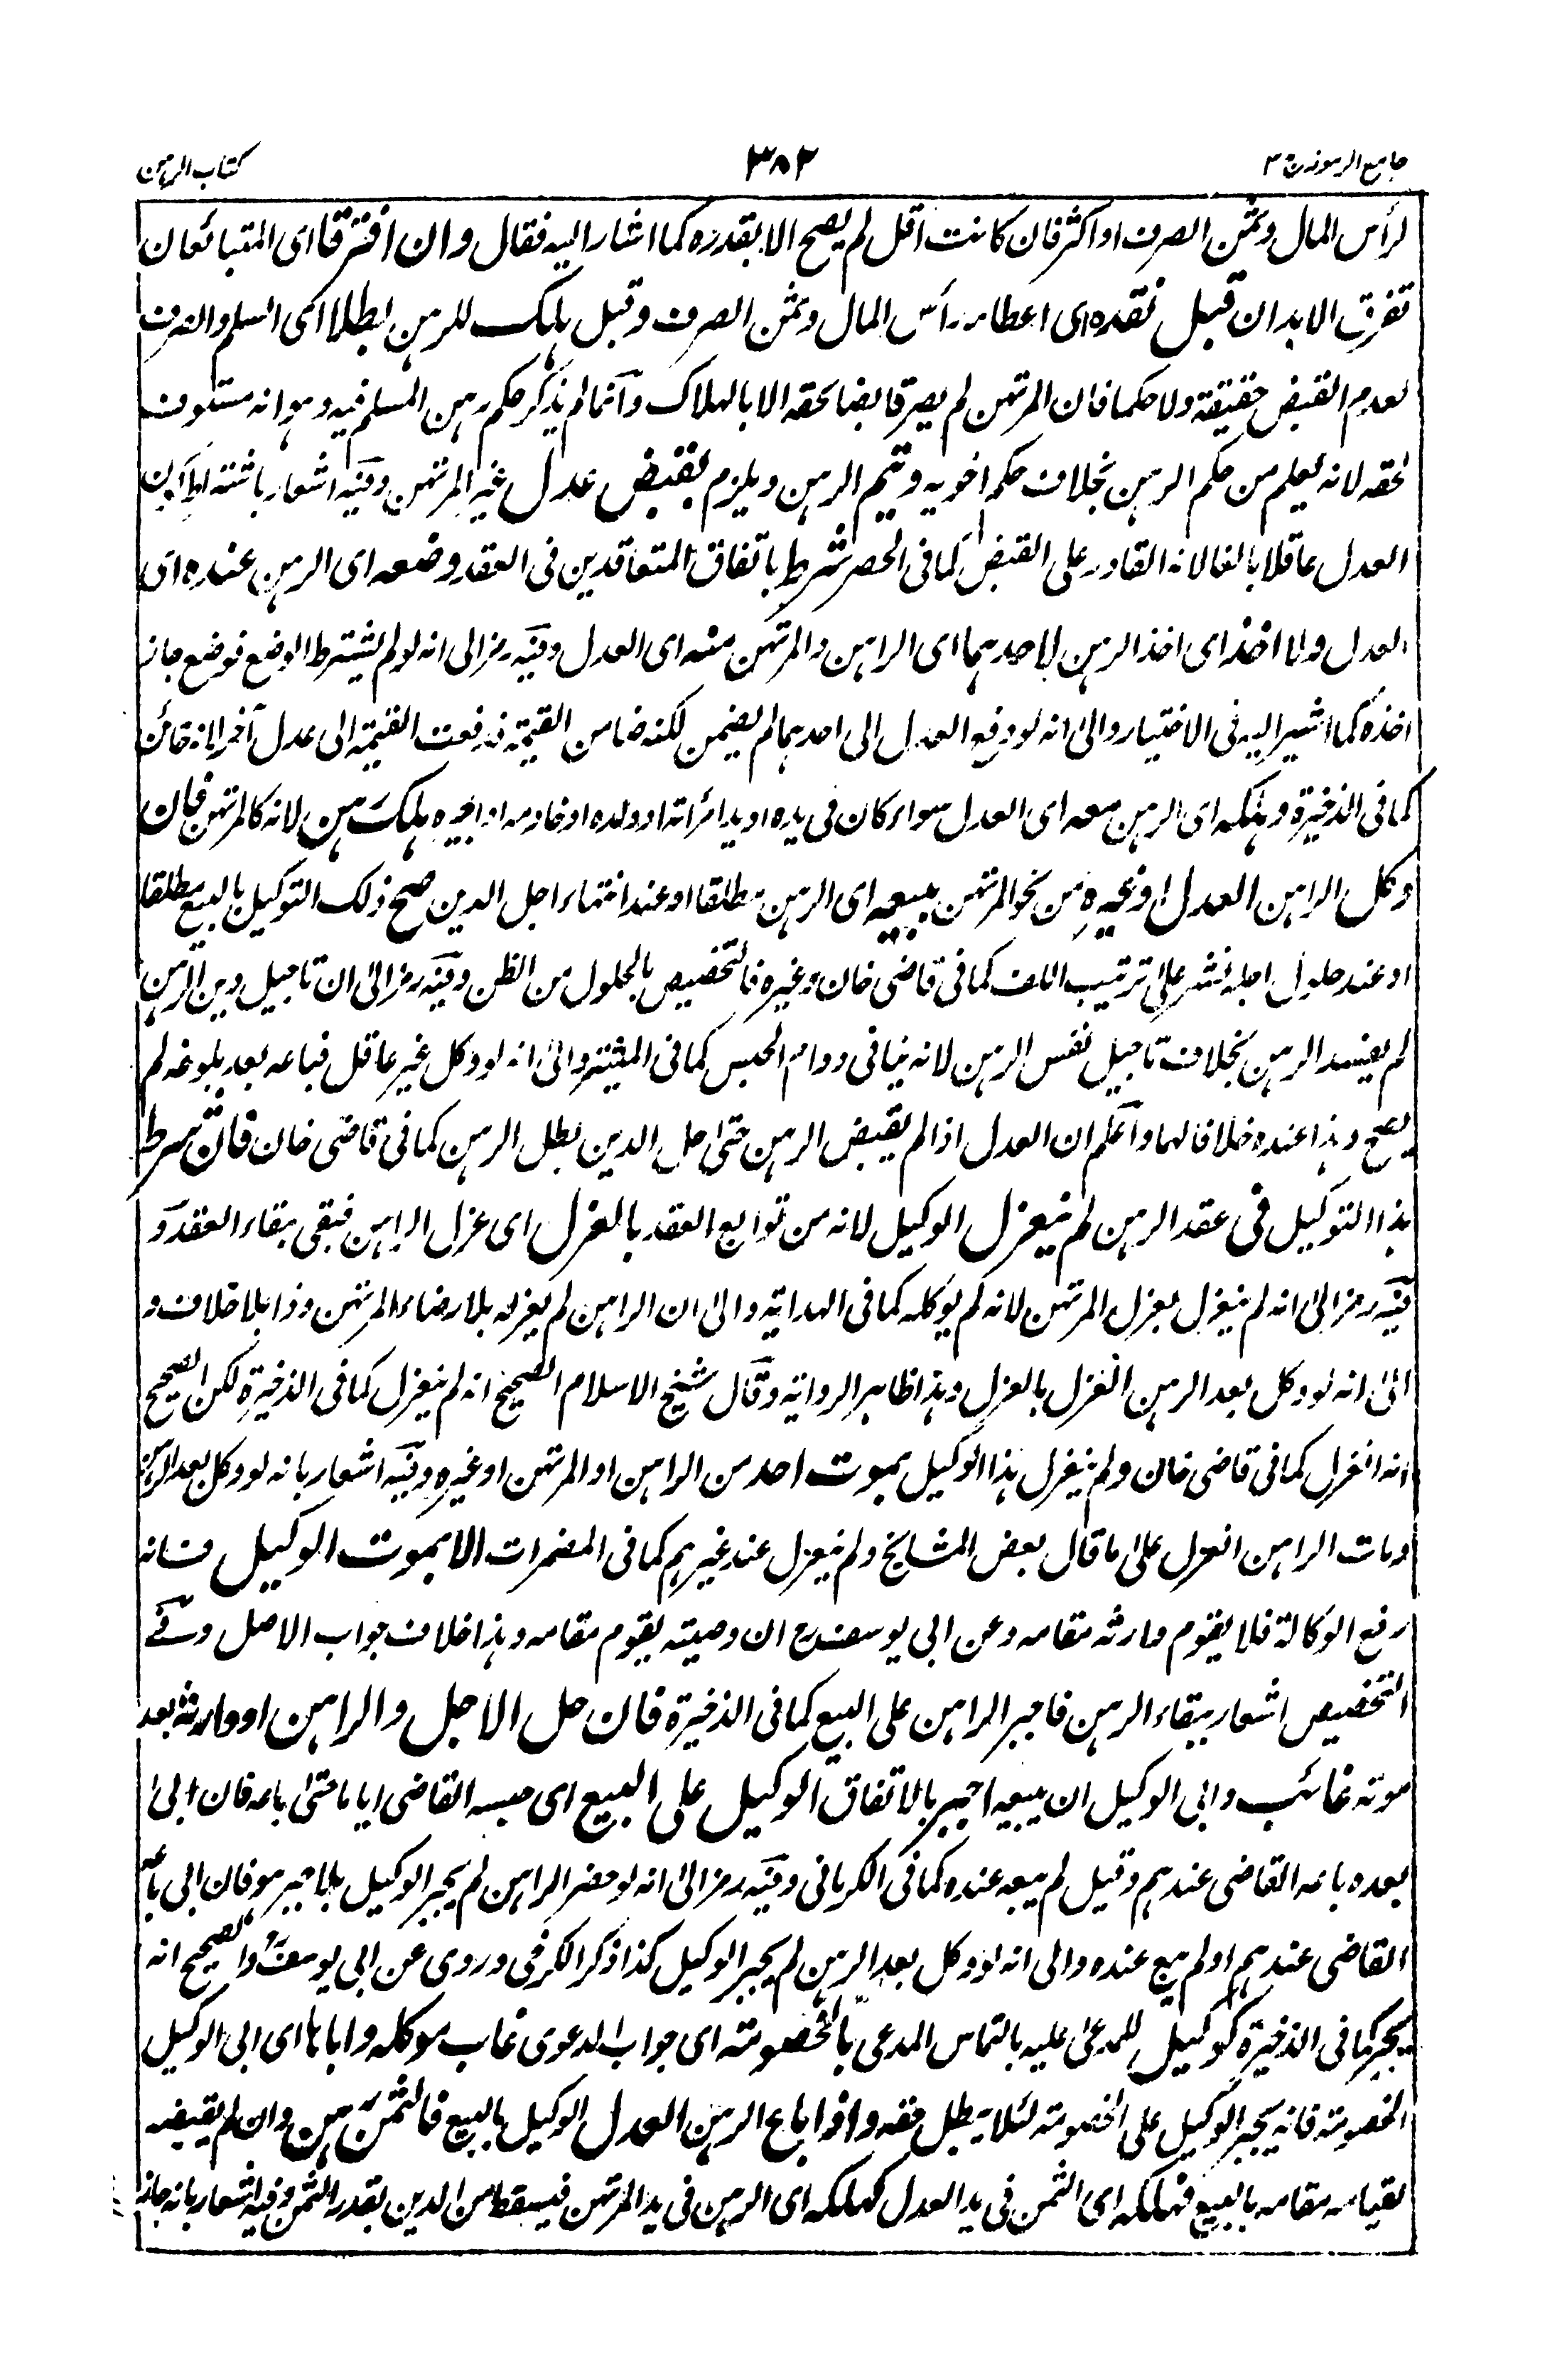 جامع الرموز ج ٣
٣٨٢
كتاب الرهن
لرأس المال وثمن الصرف او اكثر فان كانت اقل لم يصح الا بقدره كما اشار اليه فقال وان افترقا اى المتبائعان
تفرق الابدان قبل نقده اى اعطاء رأس المال وثمن الصرف وقبل هلك للرهن بطلا اى السلم والصرف
لعدم القبض حقيقة ولا حكما فان المرتهن لم يصر قابضا لحقه الا بالهلاك وانما لم يذكر حكم رهن المسلم فيه وهو انه مستوف
لحقه لانه يعلم من حكم الرهن بخلاف حكم اخويه ويتم الرهن ويلزم بقبض عدل غير المرتهن وفيه اشعار باشتراط كون
العدل عاقلا بالغا لانه القادر على القبض كما فى الحصر شرط باتفاق المتعاقدين فى العقد وضعه اى الرهن عنده اى
العدل ولا اخذ اى اخذ الرهن لاحدهما اى الراهن والمرتهن منه اى العدل وفيه رمز الى انه لو لم يشترط الوضع فوضع جاز
اخذه كما اشير اليه فى الاختيار والى انه لو دفع العدل الى احدهما لم يضمن لكنه ضامن القيمة فدفعت القيمة الى عدل آخر لانه خائن
كما فى الذخيرة وهلكه اى الرهن معه اى العدل سواء كان فى يده او يد امرأته او ولده او خادمه او اجيره هلك رهن لانه كالمرتهن فان
وكل الراهن العدل او غيره من نحو المرتهن ببيعه اى الرهن مطلقا او عند انتهاء اجل الدين صح ذلك التوكيل بالبيع مطلقا
او عند حلول اجله نشر على ترتيب اللف كما فى قاضى خان وغيره فالتخصيص بالحلول من الظن وفيه رمز الى ان تاجيل دين الرهن
لم يفسد الرهن بخلاف تاجيل نفس الرهن لانه ينافى دوام الحبس كما فى المنية والى انه لو وكل غير عاقل فباعه بعد بلوغه لم
يصح وهذا عنده خلافا لهما واعلم ان العدل اذا لم يقبض الرهن حتى حل الدين بطل الرهن كما فى قاضى خان فان شرط
هذا التوكيل فى عقد الرهن لم ينعزل الوكيل لانه من توابع العقد بالعزل اى عزل الراهن فبقى ببقاء العقد و
فيه رمز الى انه لم ينعزل بعزل المرتهن لانه لم يوكله كما فى الهداية والى ان الراهن لم يعزله بلا رضاء المرتهن وذا بلا خلاف و
الى انه لو وكل بعد الرهن انعزل بالعزل وهذا ظاهر الرواية وقال شيخ الاسلام الصحيح انه لم ينعزل كما فى الذخيرة لكن الصحيح
انه انعزل كما فى قاضى خان ولم ينعزل هذا الوكيل بموت احد من الراهن او المرتهن او غيره وفيه اشعار بانه لو وكل بعد الرهن
ومات الراهن انعزل على ما قال بعض المشايخ ولم ينعزل عند غيرهم كما فى المضمرات الا بموت الوكيل فانه
رفع الوكالة فلا يقوم وارثه مقامه وعن ابى يوسف رح ان وصيته يقوم مقامه وهذا خلاف جواب الاصل وفى
التخصيص اشعار ببقاء الرهن فاجبر الراهن على البيع كما فى الذخيرة فان حل الاجل والراهن او وارثه بعد
موته غائب وابى الوكيل ان يبيعه اجبر بالاتفاق الوكيل على البيع اى حبسه القاضى اياما حتى باعه فان ابى
بعده باعه القاضى عندهم وقيل لم يبعه عنده كما فى الكرمانى وفيه رمز الى انه لو حضر الراهن لم يجبر الوكيل بل اجبر هو فان ابى باعه
القاضى عندهم او لم يبع عنده والى انه لو وكل بعد الرهن لم يجبر الوكيل كذا ذكر الكرخى وروى عن ابى يوسف والصحيح انه
يجبر كما فى الذخيرة كوكيل للمدعى عليه بالتماس المدعى بالخصومة اى جواب الدعوى غاب موكله واباها اى ابى الوكيل
الخصومة فانه يجبر الوكيل على الخصومة لئلا يبطل حقه واذا باع الرهن العدل الوكيل بالبيع فالثمن رهن وان لم يقبضه
لقيامه مقامه بالبيع فهلكه اى الثمن فى يد العدل كهلكه اى الرهن فى يد المرتهن فيسقط من الدين بقدر الثمن وفيه اشعار بانه جاز